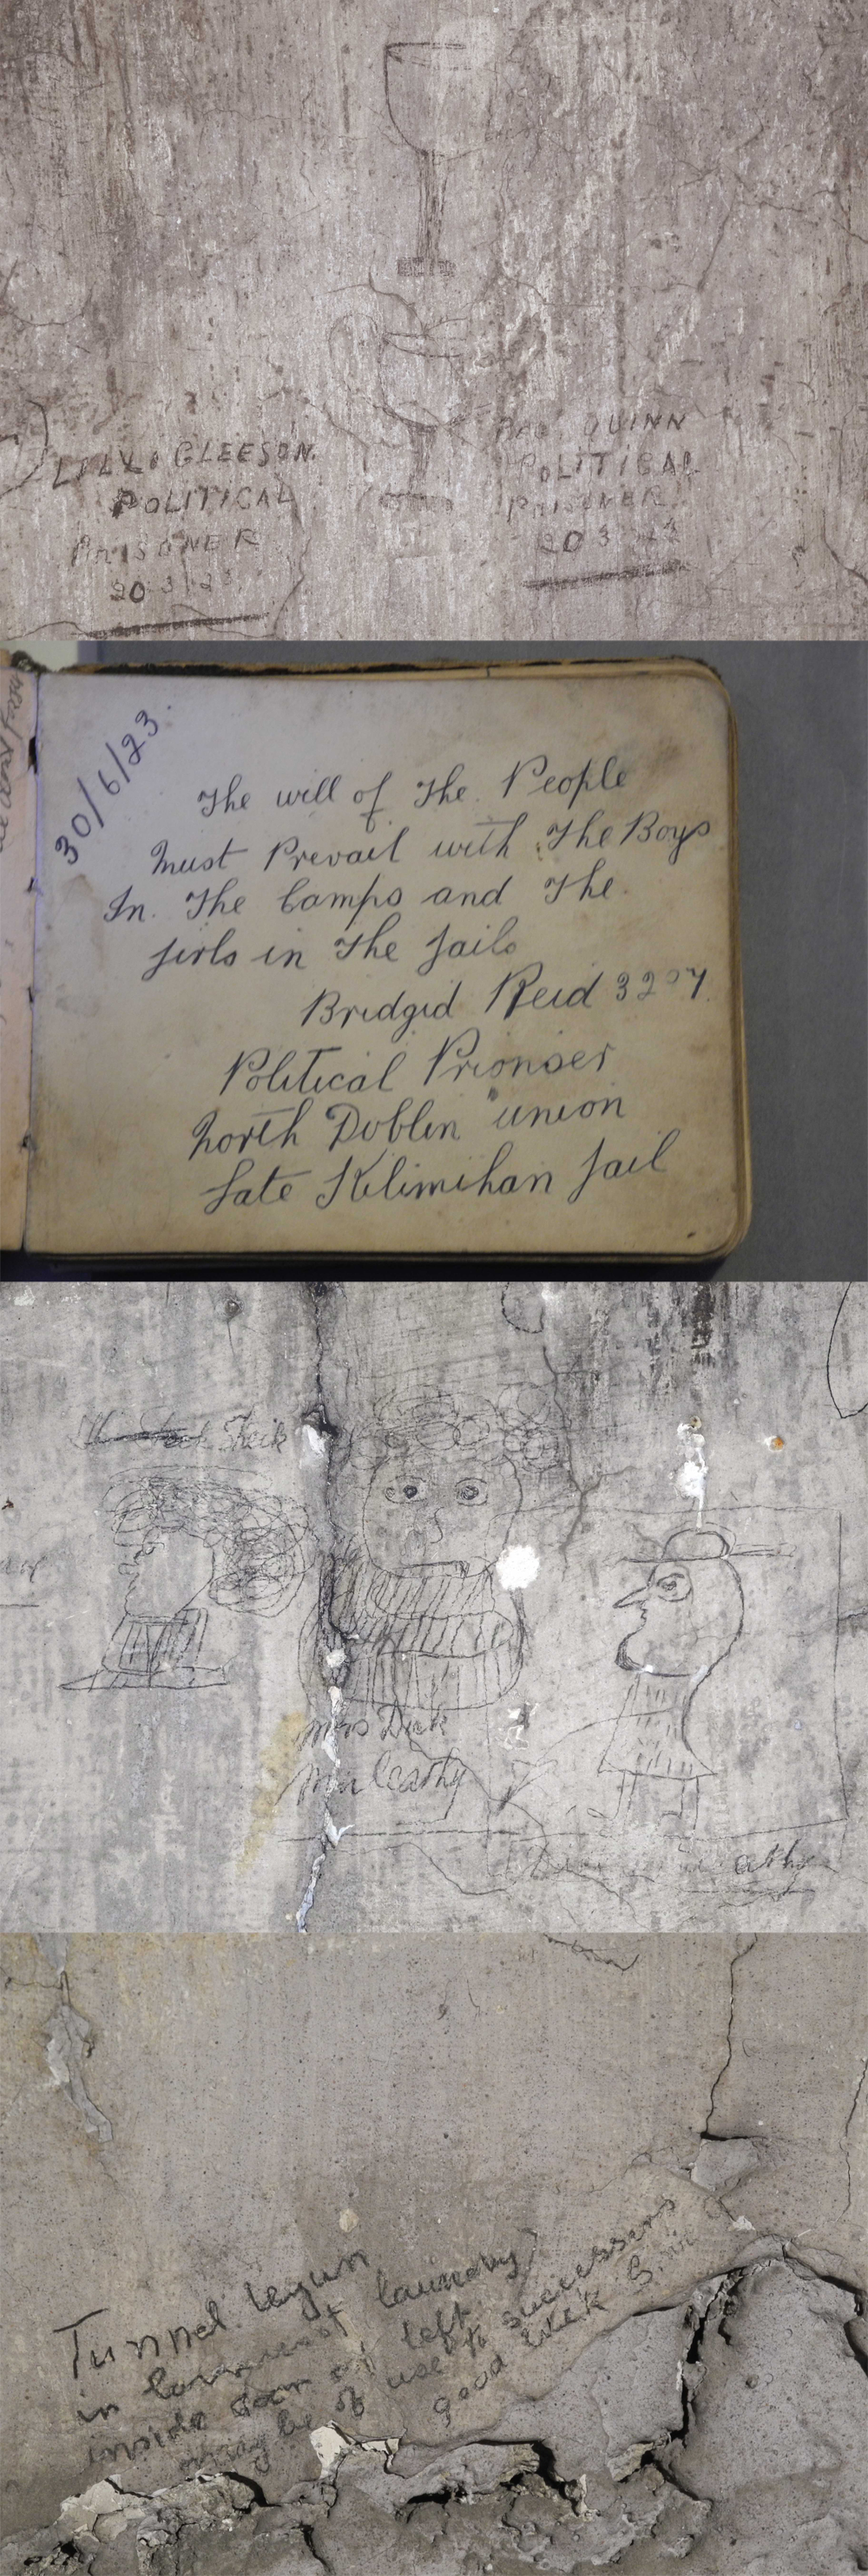 LILY GLEESON.
POLITICAL
PRISONER
20 3 23.
QUINN
POLITICAL
PRISONER
20 3 23
30/6/23.
The will of The People
Must Prevail with The Boys
In. The Camps and The.
girls in The Jails
Bridgid Reid 3207.
Political Prionser
North Doblin union
Late Kilimihan Jail
Sheik
Mrs Dick
McCarthy
Tunnel begun
in basement laundry
inside door of left.
may be of use to successors
good luck S.